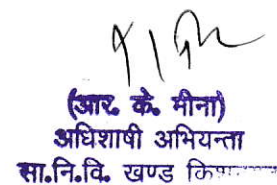 (आर. के. मीना)
अधिशाषी अभियन्ता
सा.नि.वि. खण्ड